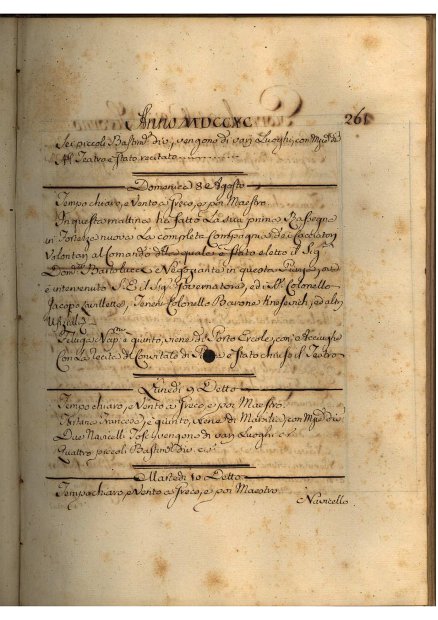 Anno MDCCXC 261
Sei piccoli Bastim.ti div.i vengono di varj Luoghi, con Mijd.e
All Teatro è stato recitato
Domenica 8 Agosto
Tempo chiaro, e Vento a Greco, e poi Maestro
In questa mattina ha fatto La sua prima Rassegna
in Fortezza nuova La completa Compagnia dei Cacciatori
Volontarj al Comando della quale è stato eletto il Sig.
Bartolucci Negoziante in questa Piazza, ed
è intervenuto S. E. il Sig. Governatore, ed il Colonello
Jacopo Lavillette, Tenen. Colonello Barone ed altri
Ufiziali
Feluga Nap.na è giunto, viene di Porto Ercole, con Acciughe
Con La recita del Convitato di è stato chiuso il Teatro
Lunedì 9 Detto
Tempo chiaro, e Vento a Greco, e poi Maestro
Tartana Francese, è giunto, viene di Marsilia, con div.
Due Navicelli Tos.i vengono di varj Luoghi
Quattro piccoli Bastim.ti div.i
Martedì 10 Detto
Tempo chiaro, e Vento a Greco, e poi Maestro
Navicello